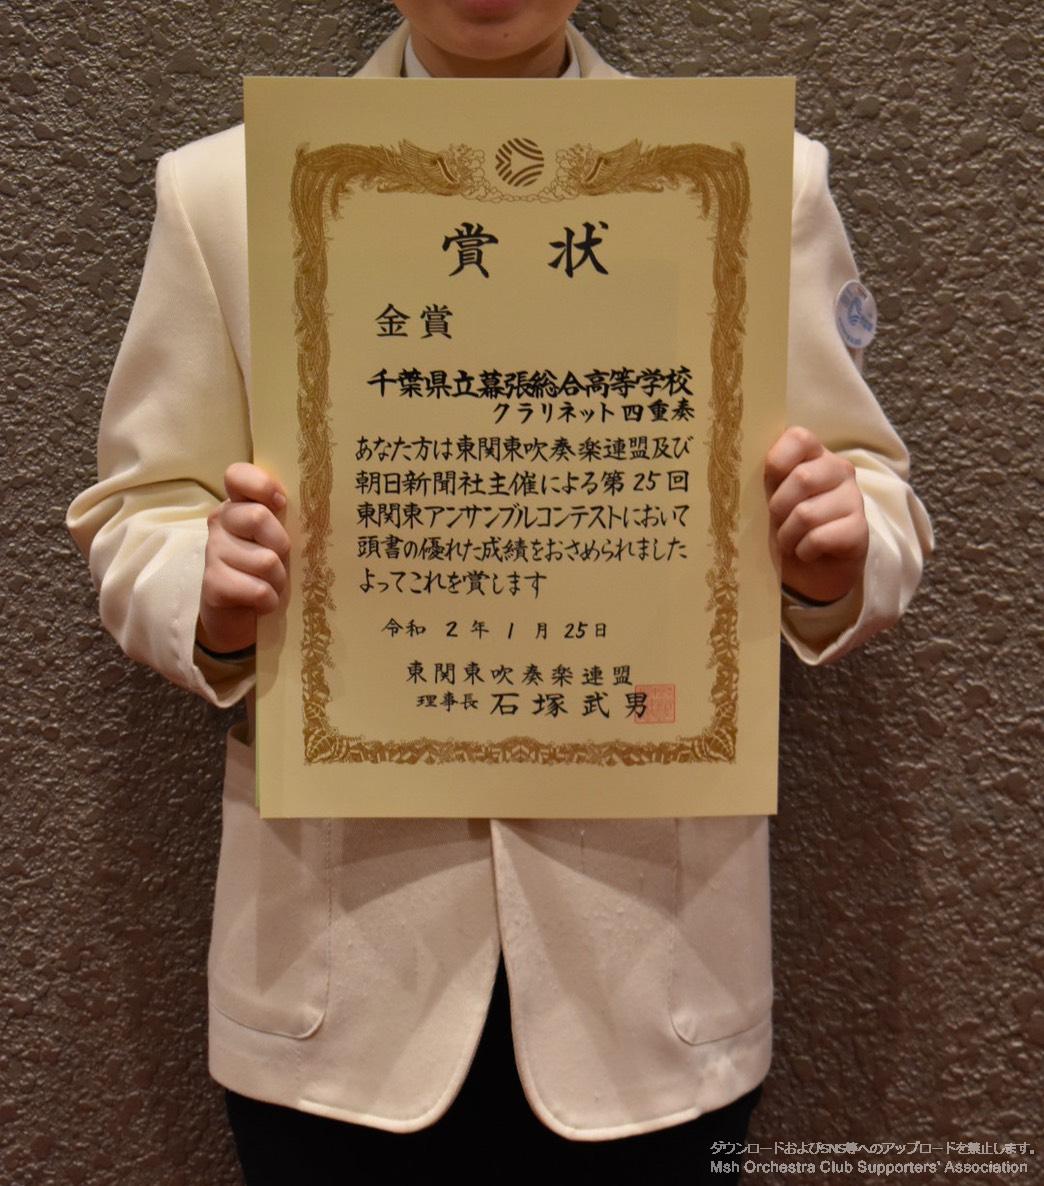 賞状
金賞
千葉県立幕張総合高等学校
クラリネット四重奏
あなた方は東関東吹奏楽連盟及び
朝日新聞社主催による第25回
東関東アンサンブルコンテストにおいて
頭書の優れた成績をおさめられました
よってこれを賞します
令和2年1月25日
東関東吹奏楽連盟
理事長 石塚武男
ダウンロードおよびSNS等へのアップロードを禁止します。
Msh Orchestra Club Supporters' Association